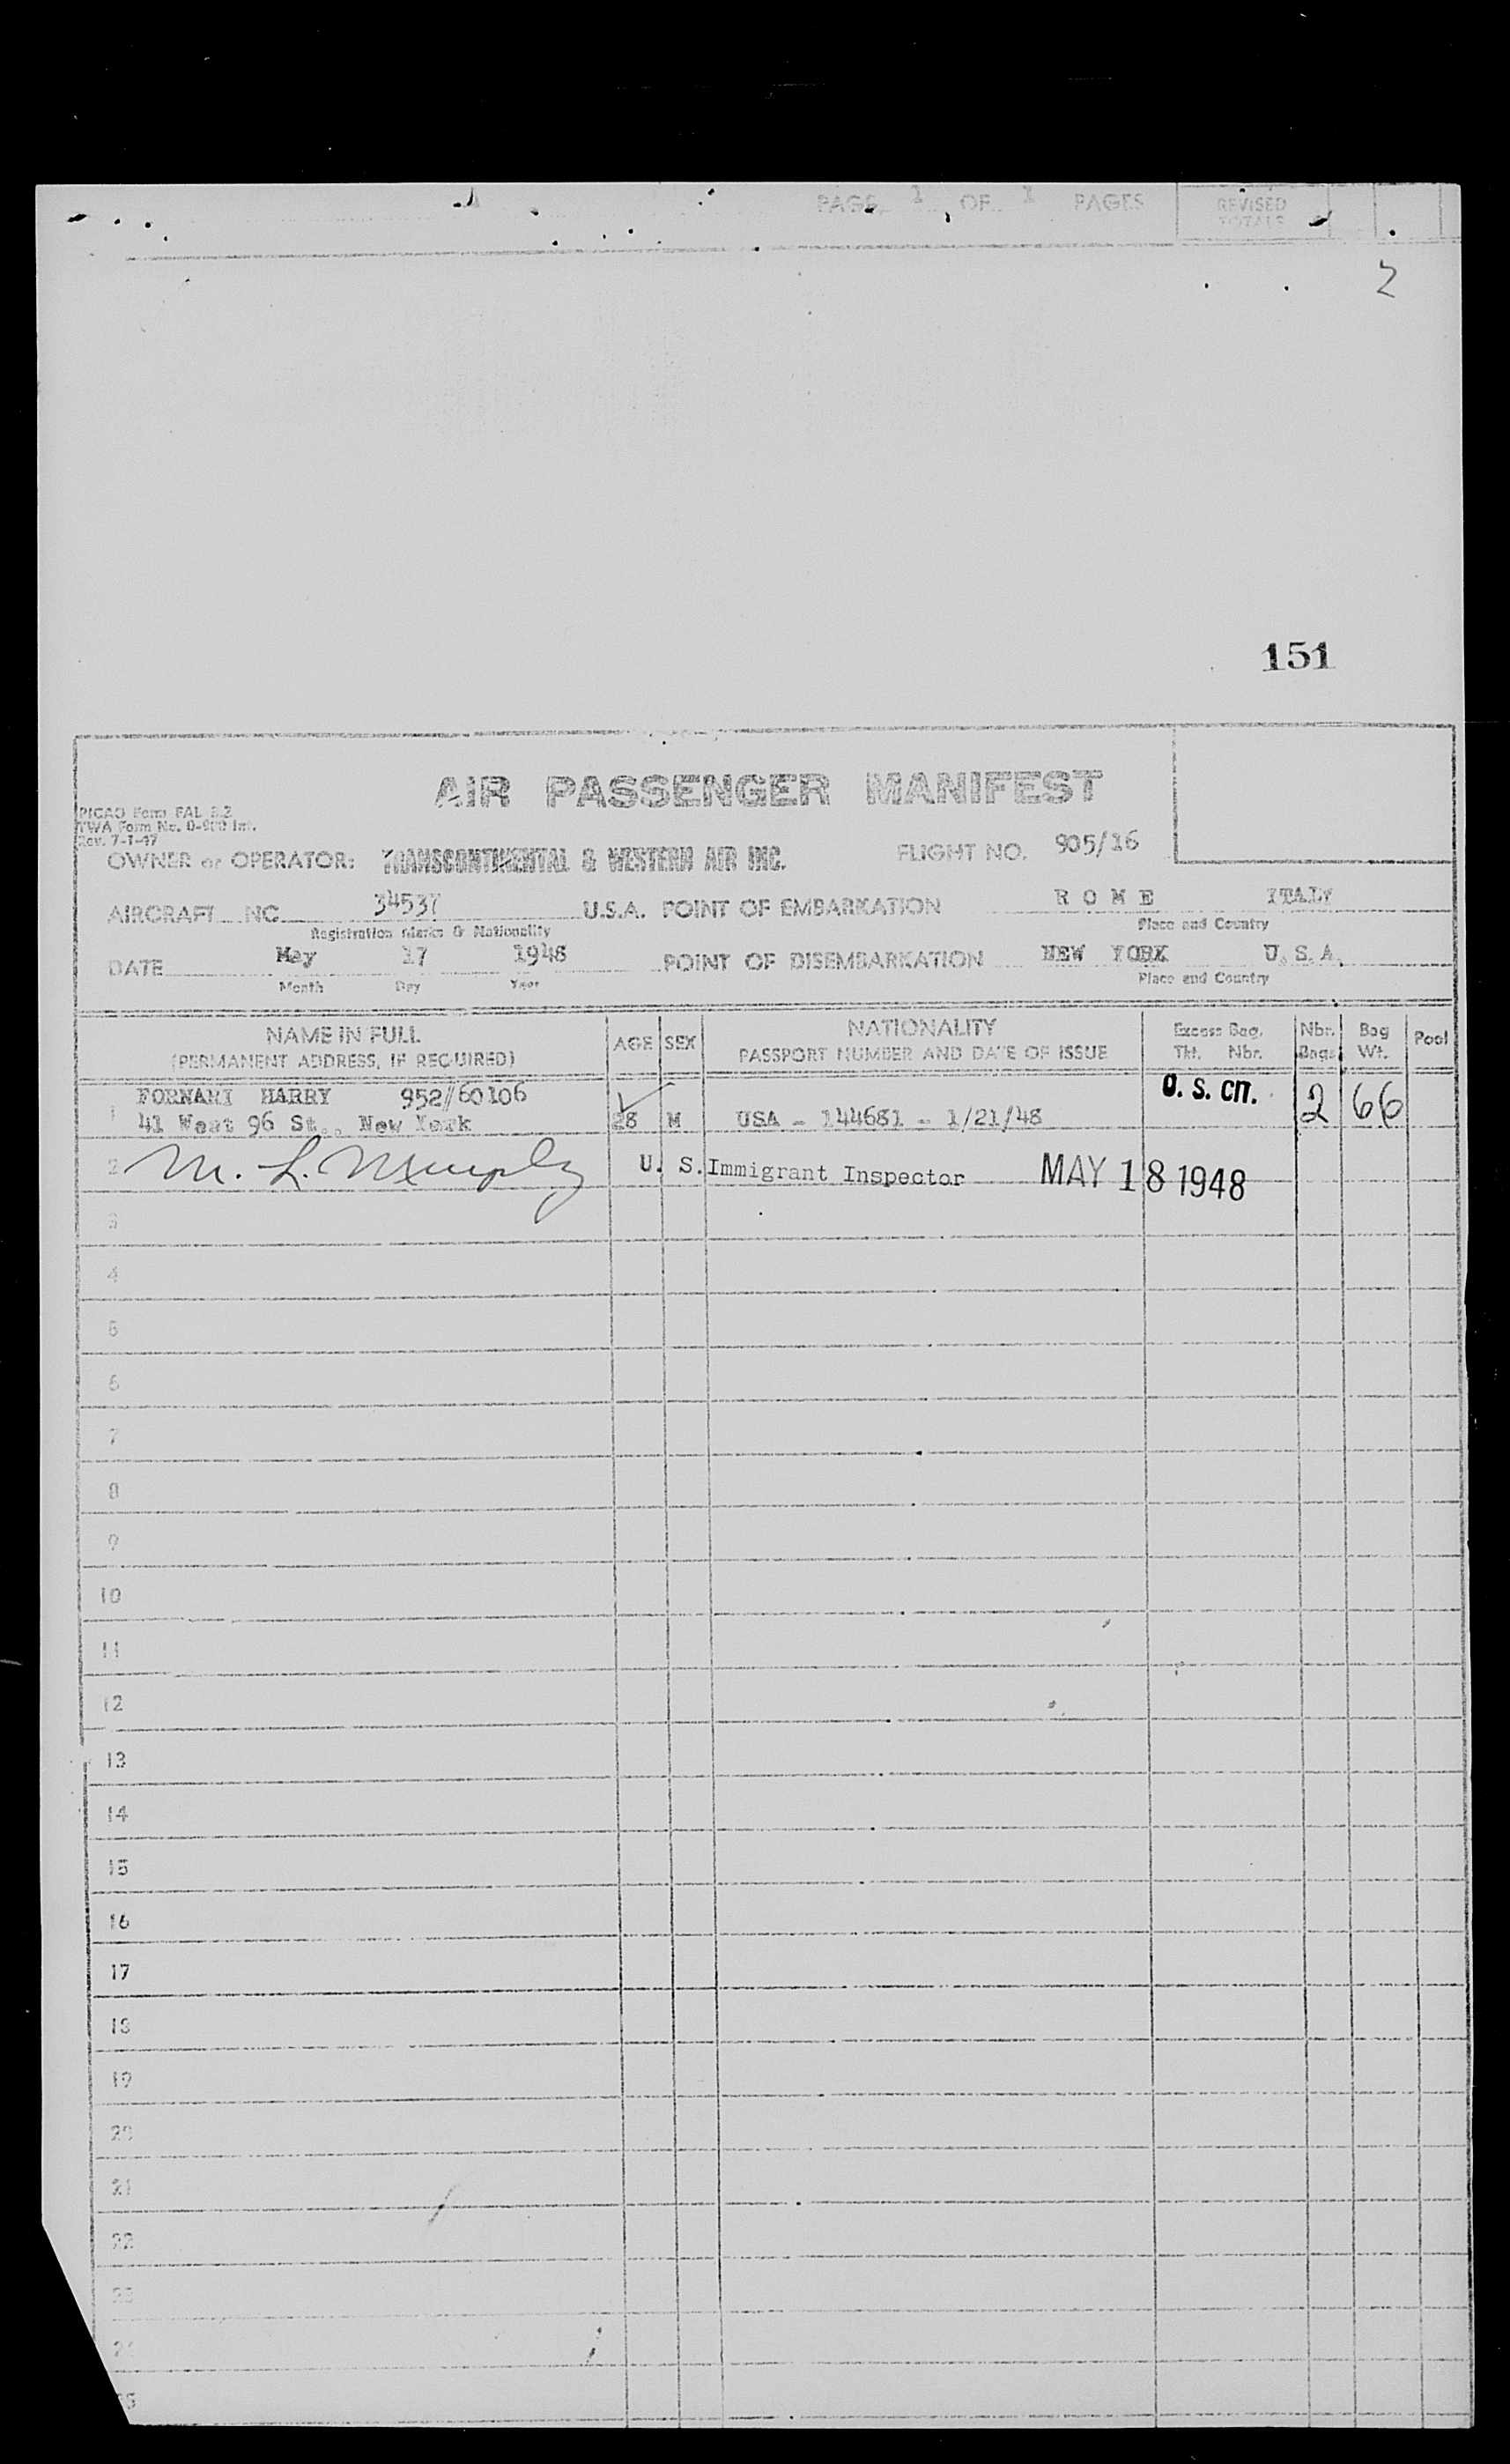 PAGE 1 OF 1 PAGES REVISED TOTALS
2
151
AIR PASSENGER MANIFEST
PICAO Form FAL
TWA Form No. Int.
Rev. 7-1-47
OWNER or OPERATOR: TRANSCONTINENTAL & WESTERN AIR INC. FLIGHT NO. 905/16
AIRCRAFT NO. 34537 U.S.A. POINT OF EMBARKATION R O M E ITALY
Registration Marks & Nationality Place and Country
DATE May 17 1948 POINT OF DISEMBARKATION NEW YORK U.S.A.
Month Day Year Place and Country
NAME IN FULL AGE SEX NATIONALITY Excess Bag. Nbr. Bag Pool
(PERMANENT ADDRESS, IF REQUIRED) PASSPORT NUMBER AND DATE OF ISSUE Tkt. Nbr. Bags Wt.
FORNARI HARRY 952//60106 U. S. CIT. 2 66
1 41 West 96 St., New York 28 M USA - 144681 - 1/21/48
2 M. L. Murphy U. S. Immigrant Inspector MAY 18 1948
3
4
5
6
7
8
9
10
11
12
13
14
15
16
17
18
19
20
21
22
23